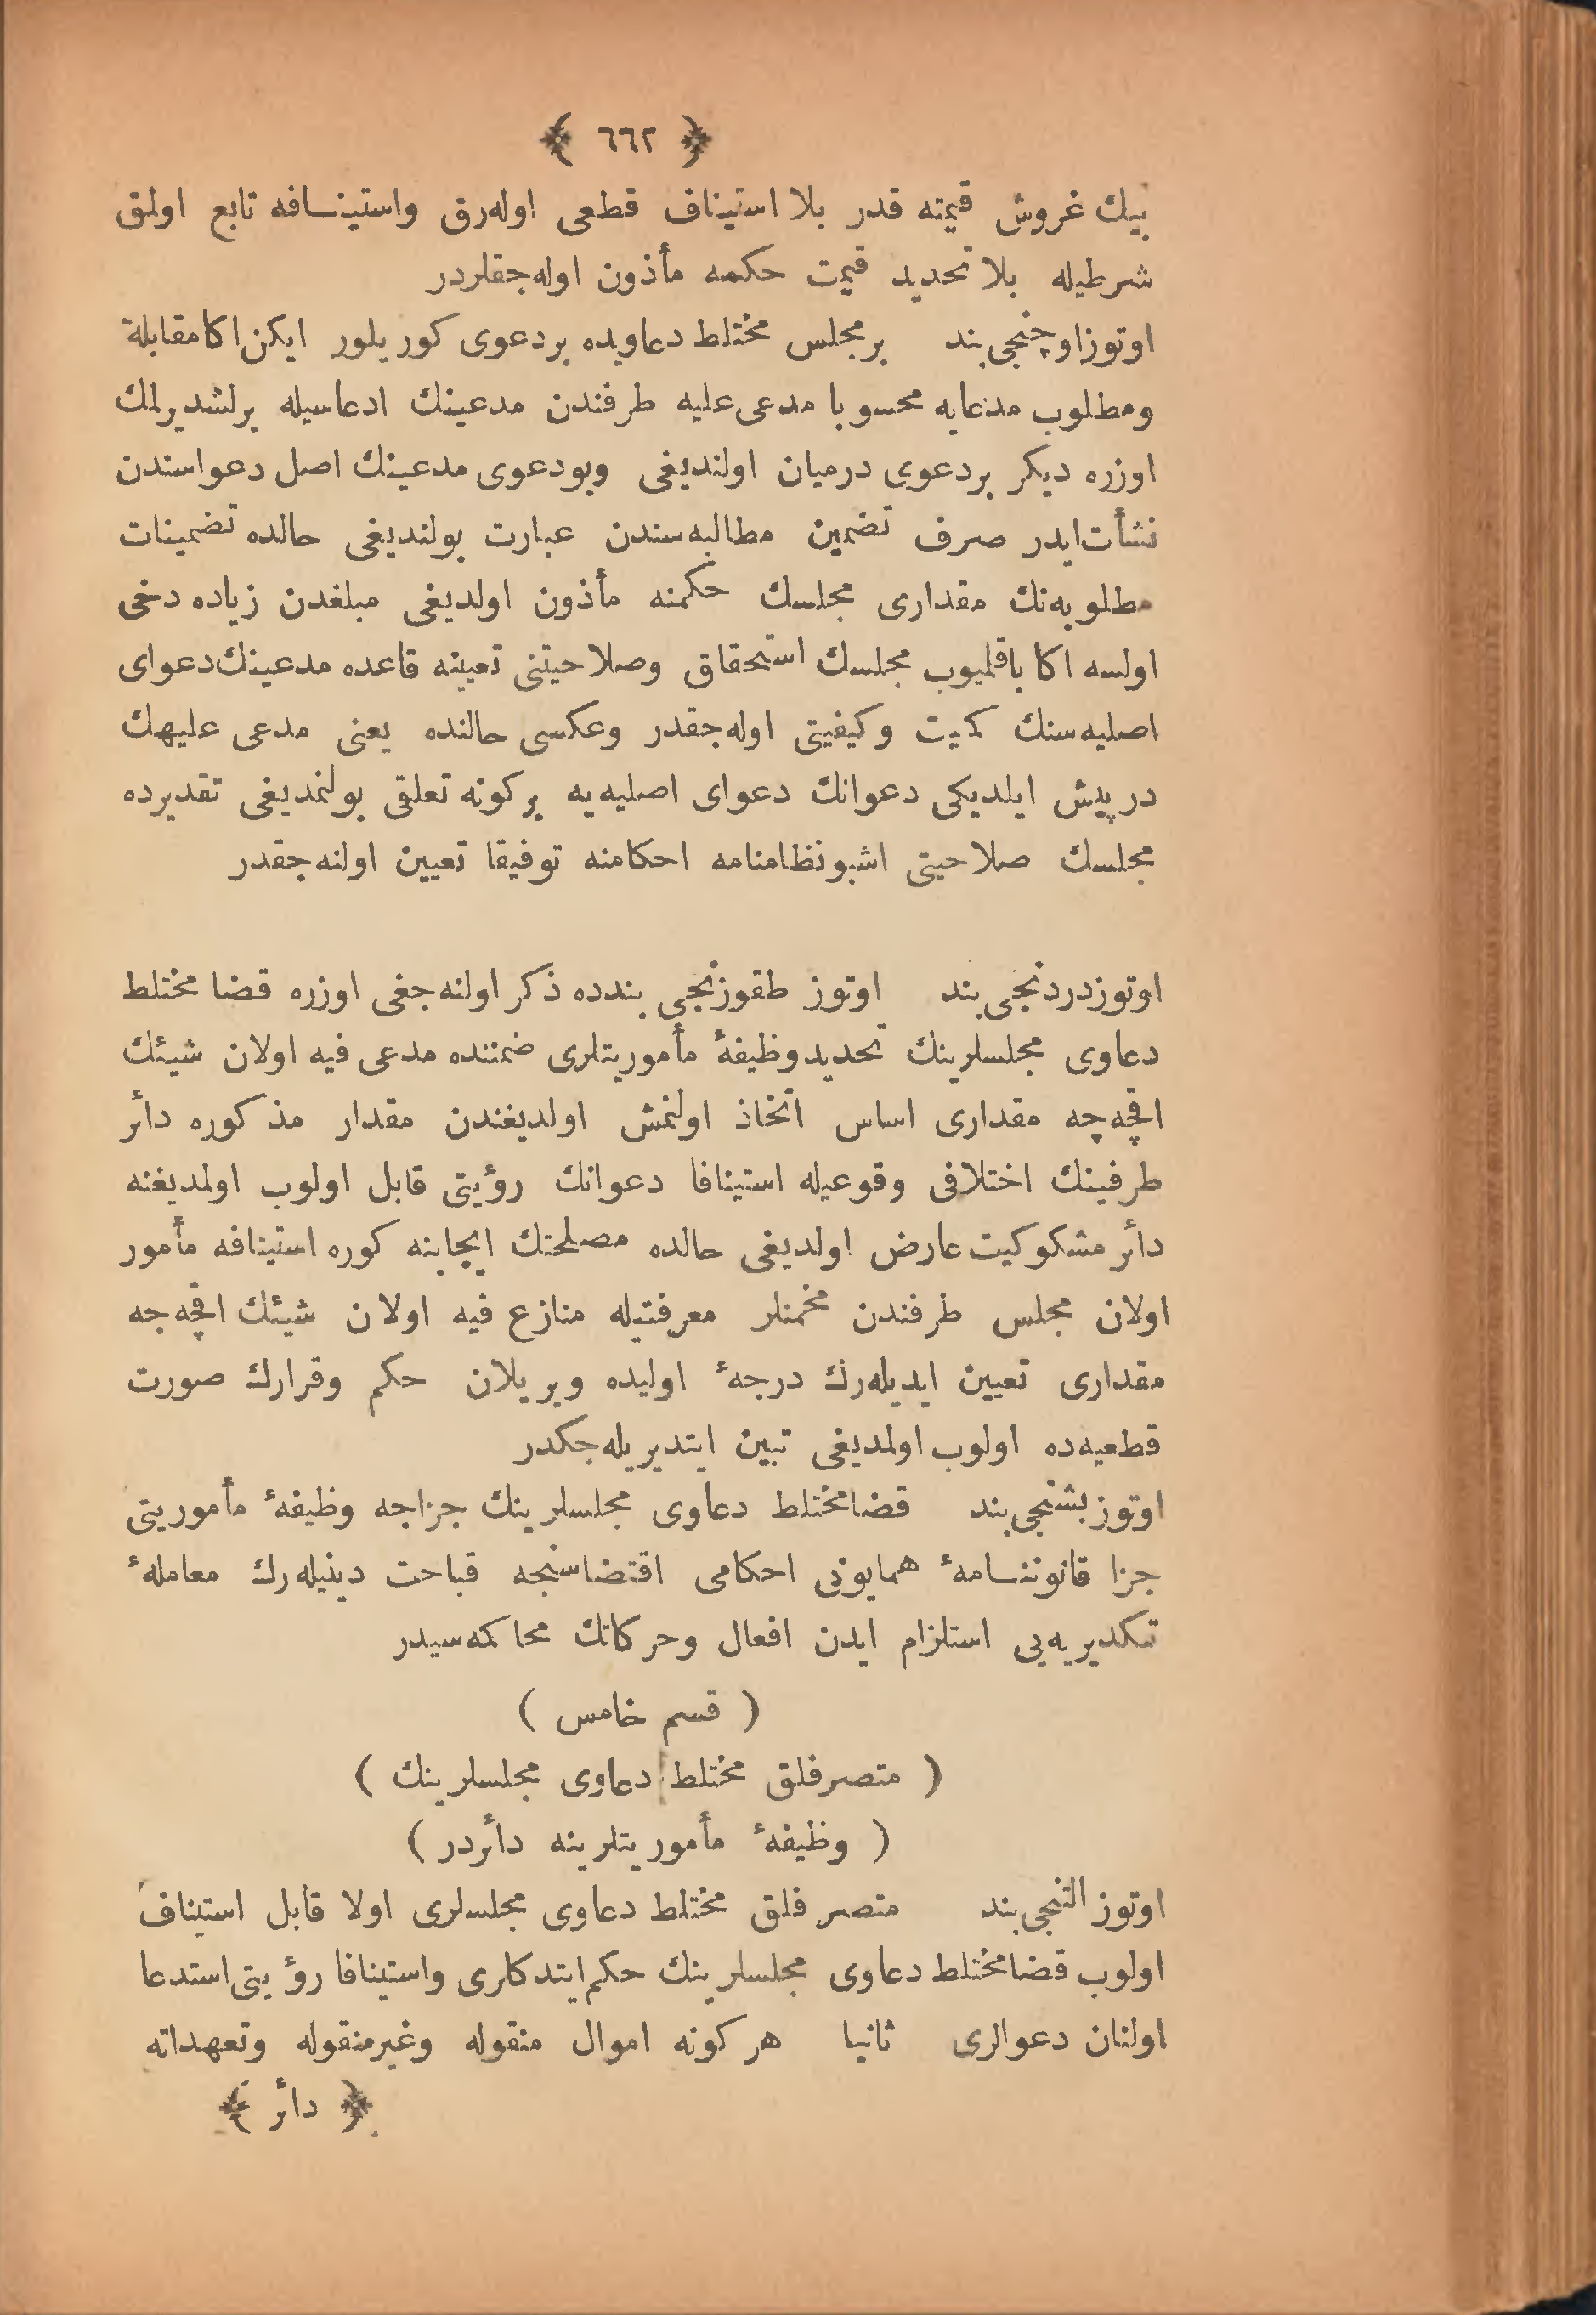 ﴿ ٦٦٢ ﴾
بیك غروش قیمته قدر بلا استیناف قطعی اوله‌رق واستینافه تابع اولمق
شرطیله بلا تحدید قیمت حکمه مأذون اوله‌جقلردر
اوتوزاوچنجی بند بر مجلس مختلط دعاویده بر دعوی کوریلور ایکن اکا مقابلة
ومطلوب مدعابه محسوبا مدعی علیه طرفندن مدعینك ادعاسیله برلشدیرلمك
اوزره دیکر بر دعوی درمیان اولندیغی وبودعوی مدعینك اصل دعواسندن
نشأت ایدر صرف تضمین مطالبه‌سندن عبارت بولندیغی حالده تضمینات
مطلوبه‌نك مقداری مجلسك حکمنه مأذون اولدیغی مبلغدن زیاده دخی
اولسه اکا باقلمیوب مجلسك استحقاق وصلاحیتنی تعیینه قاعده مدعینك دعوای
اصلیه‌سنك کمیت وکیفیتی اوله‌جقدر وعکسی حالنده یعنی مدعی علیهك
درپیش ایلدیکی دعوانك دعوای اصلیه‌یه بر کونه تعلقی بولنمدیغی تقدیرده
مجلسك صلاحیتی اشبونظامنامه احکامنه توفیقا تعیین اولنه‌جقدر
اوتوزدردنجی بند اوتوز طقوزنجی بندده ذکر اولنه‌جغی اوزره قضا مختلط
دعاوی مجلسلرینك تحدید وظیفهٔ مأموریتلری ضمننده مدعی فیه اولان شیئك
اقچه‌چه مقداری اساس اتخاذ اولنمش اولدیغندن مقدار مذکوره دائر
طرفینك اختلافی وقوعیله استینافا دعوانك رؤیتی قابل اولوب اولمدیغنه
دائر مشکوکیت عارض اولدیغی حالده مصلحتك ایجابنه کوره استینافه مأمور
اولان مجلس طرفندن مخمنلر معرفتیله منازع فیه اولان شیئك اقچه‌جه
مقداری تعیین ایدیله‌رك درجهٔ اولیده ویریلان حکم وقرارك صورت
قطعیه‌ده اولوب اولمدیغی تبین ایتدیریله‌جکدر
اوتوز بشنجی بند قضا مختلط دعاوی مجلسلرینك جزاجه وظیفهٔ مأموریتی
جزا قانوننامهٔ همایونی احکامی اقتضاسنجه قباحت دینیله‌رك معاملهٔ
تکدیریه‌یی استلزام ایدن افعال وحرکاتك محاکمه‌سیدر
( قسم خامس )
( متصرفلق مختلط دعاوی مجلسلرینك )
( وظیفهٔ مأموریتلرینه دائردر )
اوتوز التنجی بند متصرفلق مختلط دعاوی مجلسلری اولا قابل استیناف
اولوب قضا مختلط دعاوی مجلسلرینك حکم ایتدکلری واستینافا رؤیتی استدعا
اولنان دعوالری ثانیا هر کونه اموال منقوله وغیر منقوله وتعهداته
﴿ دائر ﴾